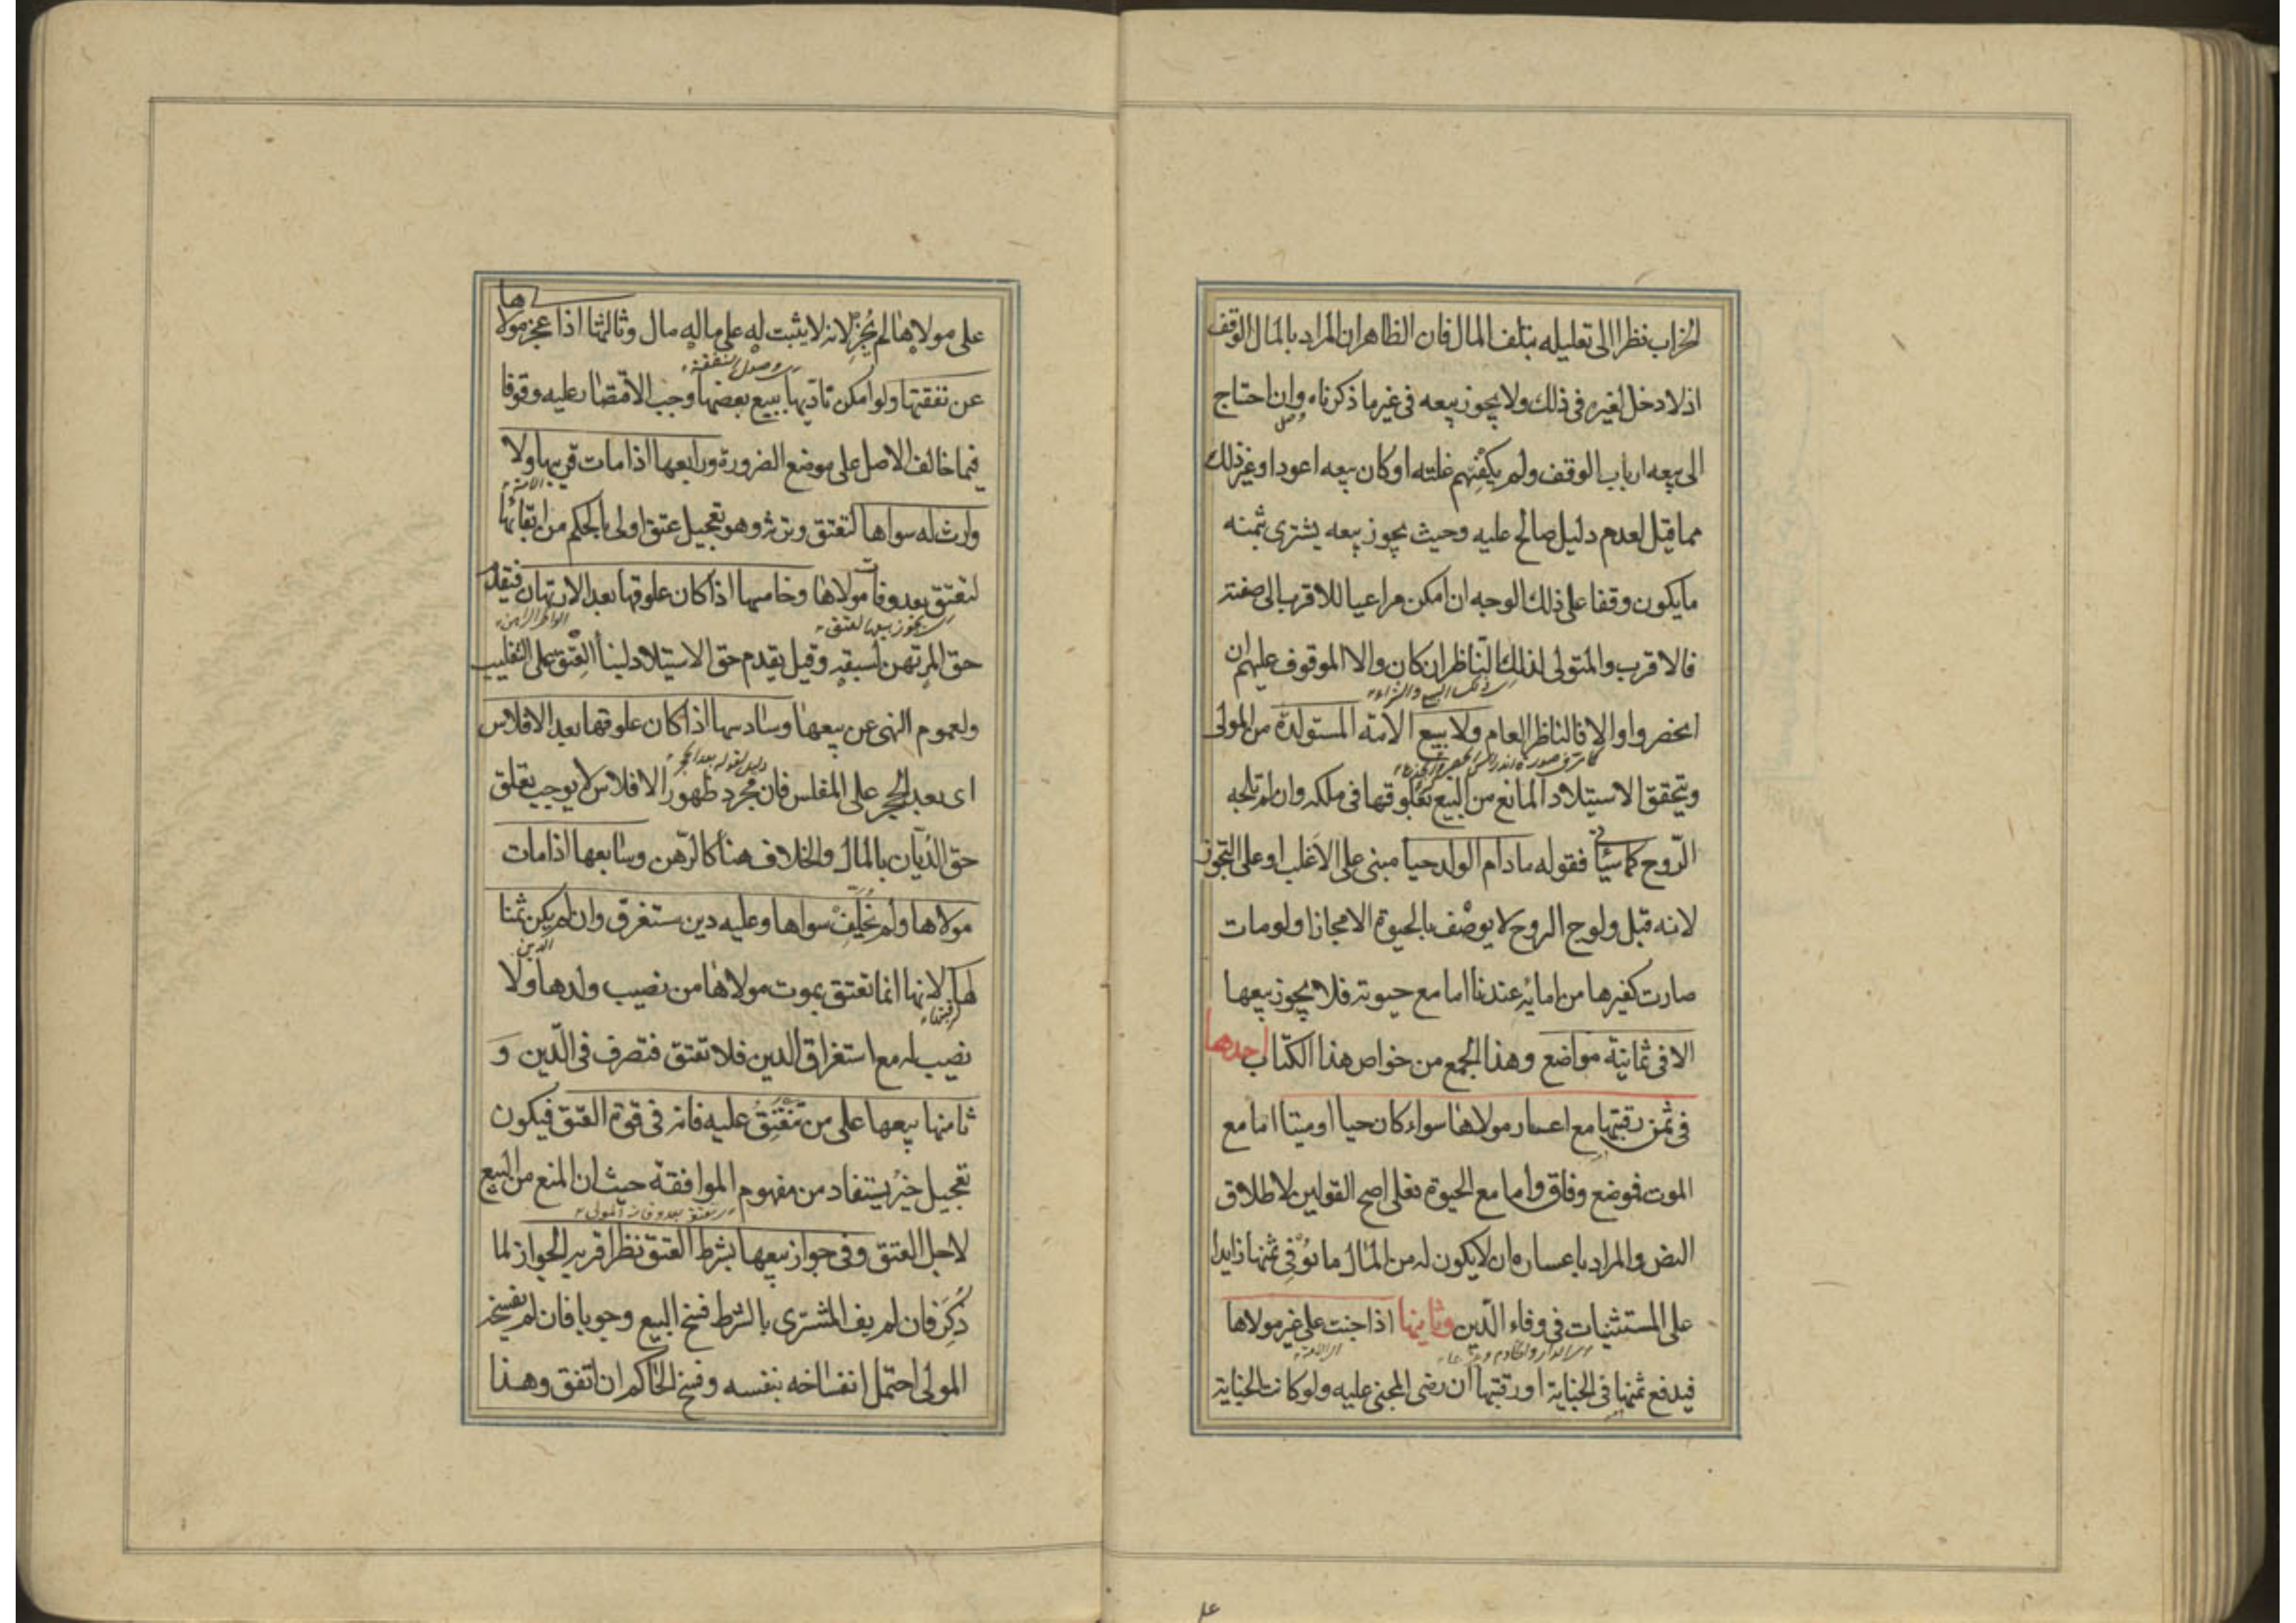 الخراب نظرا الى تعليله بتلف المال فان الظاهر ان المراد بالمال الوقف
اذ لا دخل لغيره فى ذلك ولا يجوز بيعه فى غير ما ذكرناه وان احتاج
الى بيعه ارباب الوقف ولم يكفهم غلته او كان بيعه اعود او غير ذلك
مما قيل لعدم دليل صالح عليه وحيث يجوز بيعه يشترى بثمنه
ما يكون وقفا على ذلك الوجه ان امكن مراعيا للاقرب الى صفته
فالاقرب والمتولى لذلك الناظر ان كان والا الموقوف عليهم ان
انحصروا والا فالناظر العام ولا بيع الامة المستولدة من المولى
ويتحقق الاستيلاد المانع من البيع بعلوقها فى ملكه وان لم تلجه
الروح كما سيأتى فقوله ما دام الولد حيا مبنى على الاغلب او على التجوز
لانه قبل ولوج الروح لا يوصف بالحيوة الا مجازا ولو مات
صارت كغيرها من امائه عندنا اما مع حيوته فلا يجوز بيعها
الا فى ثمانية مواضع وهذا الجمع من خواص هذا الكتاب احدها
فى ثمن رقبتها مع اعسار مولاها سواء كان حيا او ميتا اما مع
الموت فموضع وفاق واما مع الحيوة فعلى اصح القولين لاطلاق
النص والمراد باعساره ان لا يكون له من المال ما يوفى ثمنها زايدا
على المستثنيات فى وفاء الدين وثانيها اذا جنت على غير مولاها
فيدفع ثمنها فى الجناية او رقبتها ان رضى المجنى عليه ولو كانت الجناية
على مولاها لم يجز لانه لا يثبت له على ماله مال وثالثها اذا عجز مولاها
وصول النفقة
عن نفقتها ولو امكن تاديها ببيع بعضها وجب الاقتصار عليه وقوفا
فيما خالف الاصل على موضع الضرورة ورابعها اذا مات قريبها ولا
الامة
وارث له سواها لتعتق وترثه وهو تعجيل عتق اولى بالحكم من ابقائها
لتعتق بعد وفات مولاها وخامسها اذا كان علوقها بعد الارتهان فيقدم
حق المرتهن لسبقه وقيل يقدم حق الاستيلاد لبناء العتق على التغليب
ولعموم النهى عن بيعها وسادسها اذا كان علوقها بعد الافلاس
دليل لقوله بعد الحجر
اى بعد الحجر على المفلس فان مجرد ظهور الافلاس لا يوجب تعلق
حق الديان بالمال والخلاف هنا كالرهن وسابعها اذا مات
مولاها ولم يخلف سواها وعليه دين مستغرق وان لم يكن ثمنا
الدين
لها لانها انما تعتق بموت مولاها من نصيب ولدها ولا
لرقبتها
نصيب له مع استغراق الدين فلا تعتق فتصرف فى الدين و
ثامنها بيعها على من تنعتق عليه فانه فى قوة العتق فيكون
تعجيل خير يستفاد من مفهوم الموافقة حيث ان المنع من البيع
لاجل العتق وفى جواز بيعها بشرط العتق نظر اقربه الجواز لما
ذكر فان لم يف المشترى بالشرط فسخ البيع وجوبا فان لم يفسخه
المولى احتمل انفساخه بنفسه وفسخ الحاكم ان اتفق وهذا